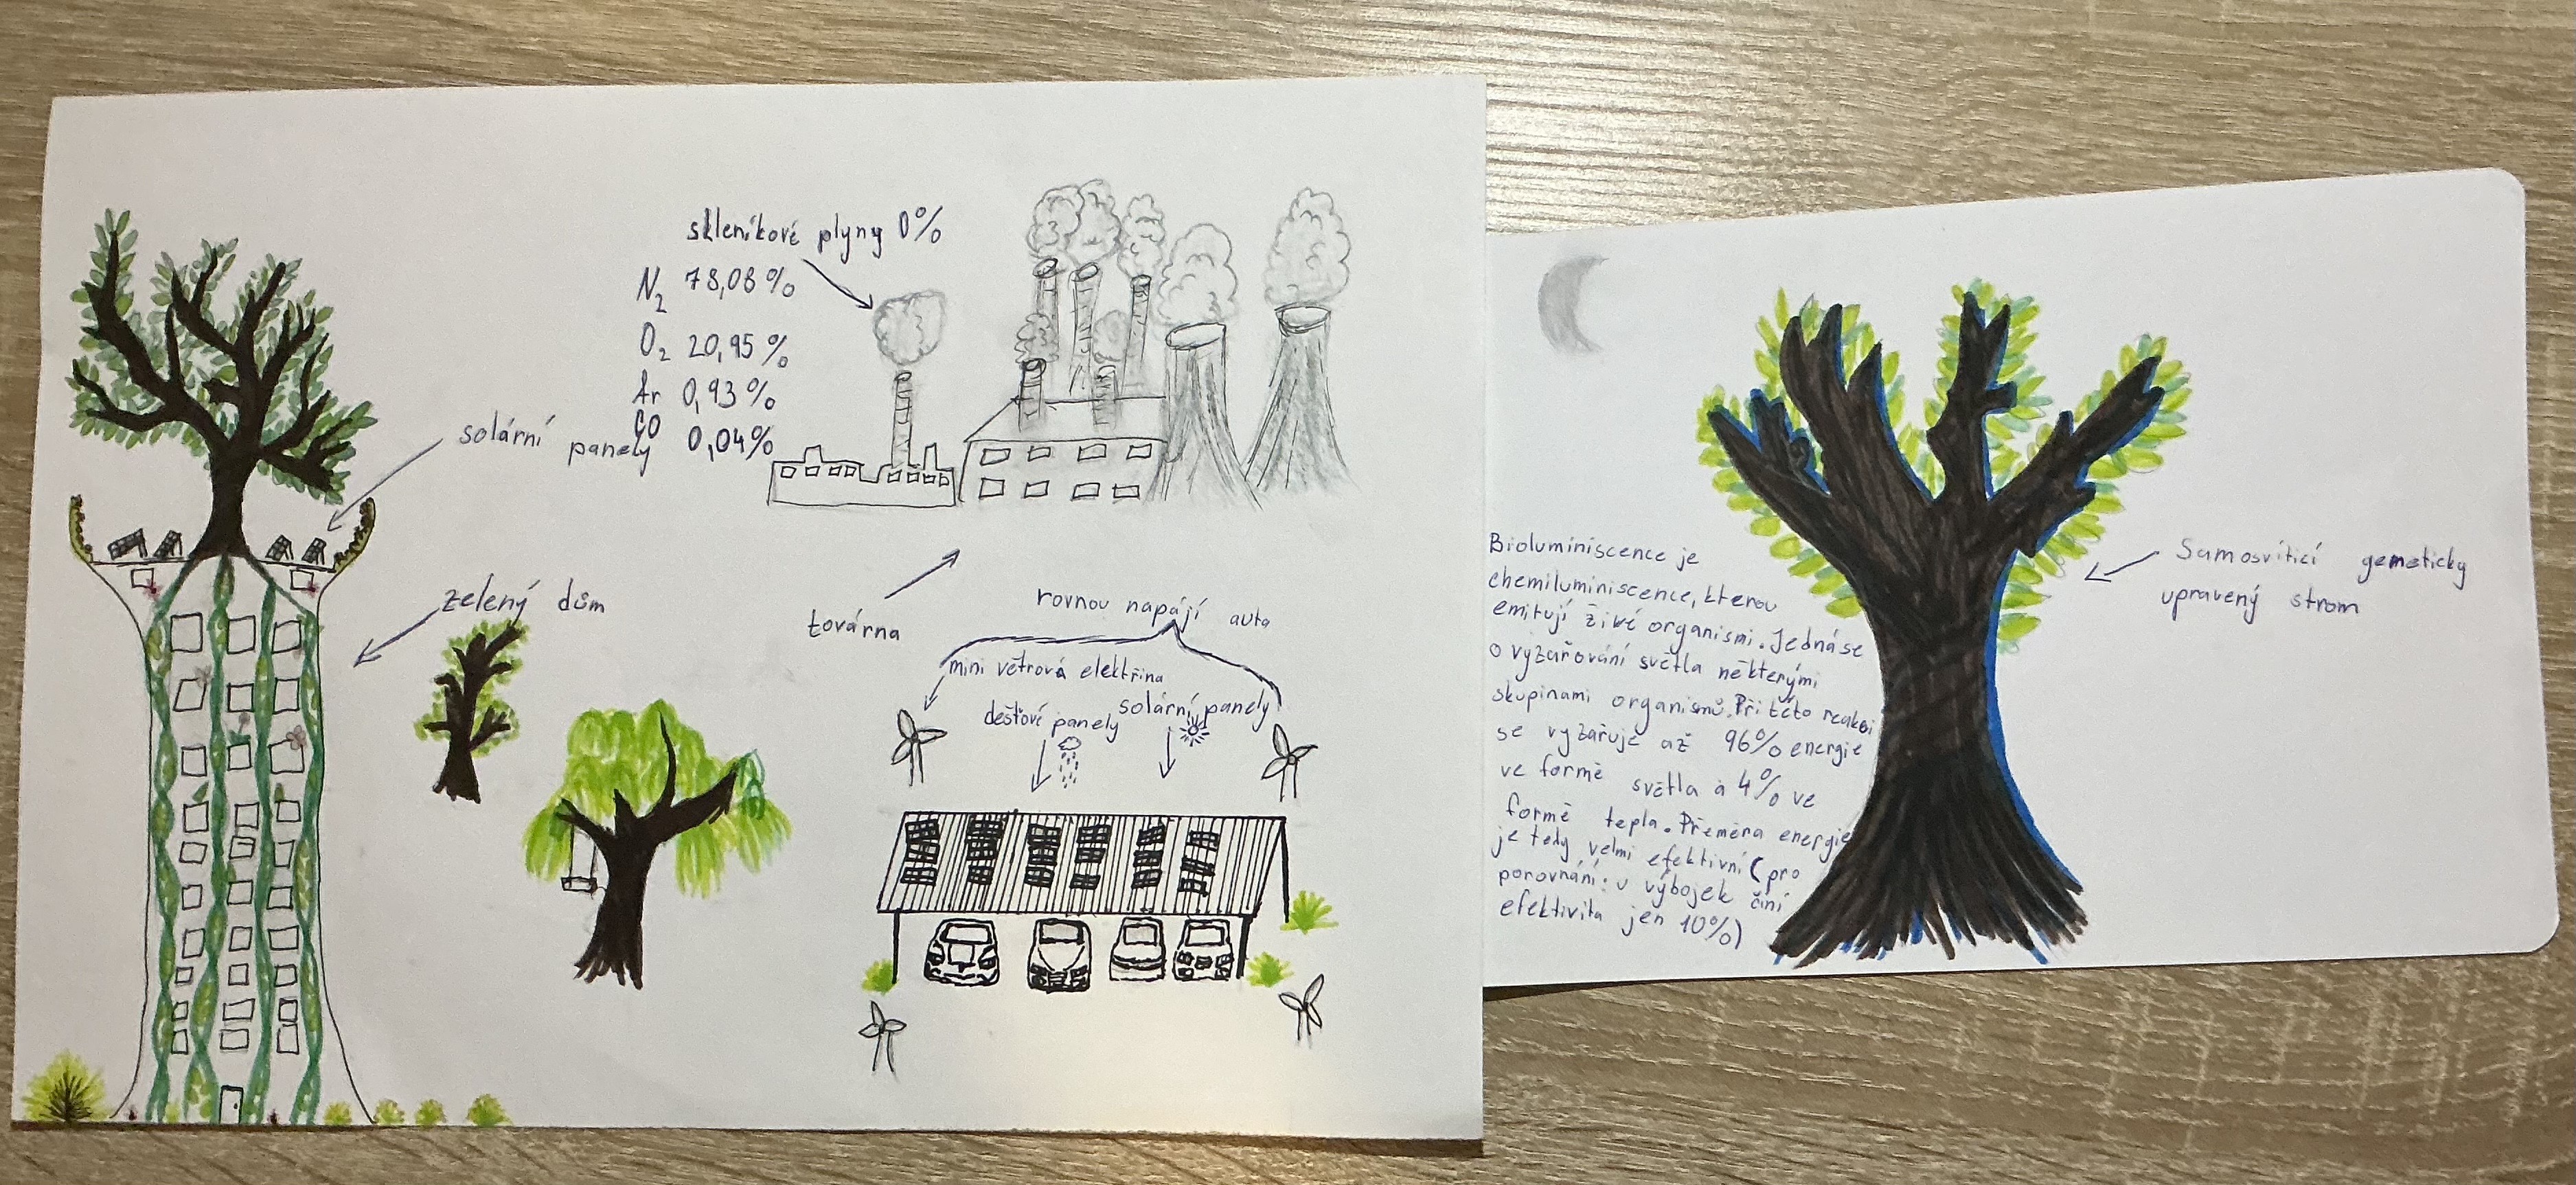 skleníkové plyny 0%
N2 78,08%
O2 20,95%
Ar 0,93%
CO 0,04%
solární
panely
zelený dům
továrna
rovnou napájí auta
mini větrová elektřina
dešťové panely
solární panely
Bioluminiscence je
chemiluminiscence, kterou
emitují živé organismi. Jedná se
o vyzařování světla některými
skupinami organismů. Při této reakci
se vyzařuje až 96% energie
ve formě světla a 4% ve
formě tepla. Přeměna energie
je tedy velmi efektivní (pro
porovnání: u výbojek činí
efektivita jen 10%)
Samosvítící gemeticky
upravený strom